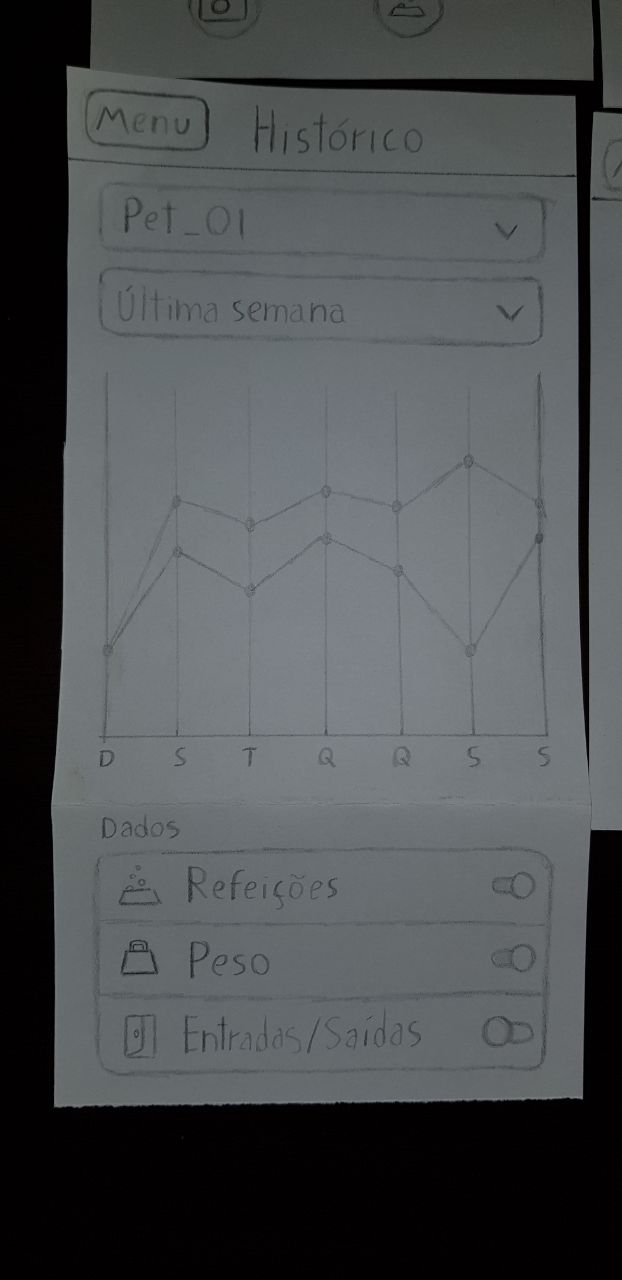 Menu Histórico
Pet_01
Última semana
D S T Q Q S S
Dados
Refeições
Peso
Entradas/Saídas